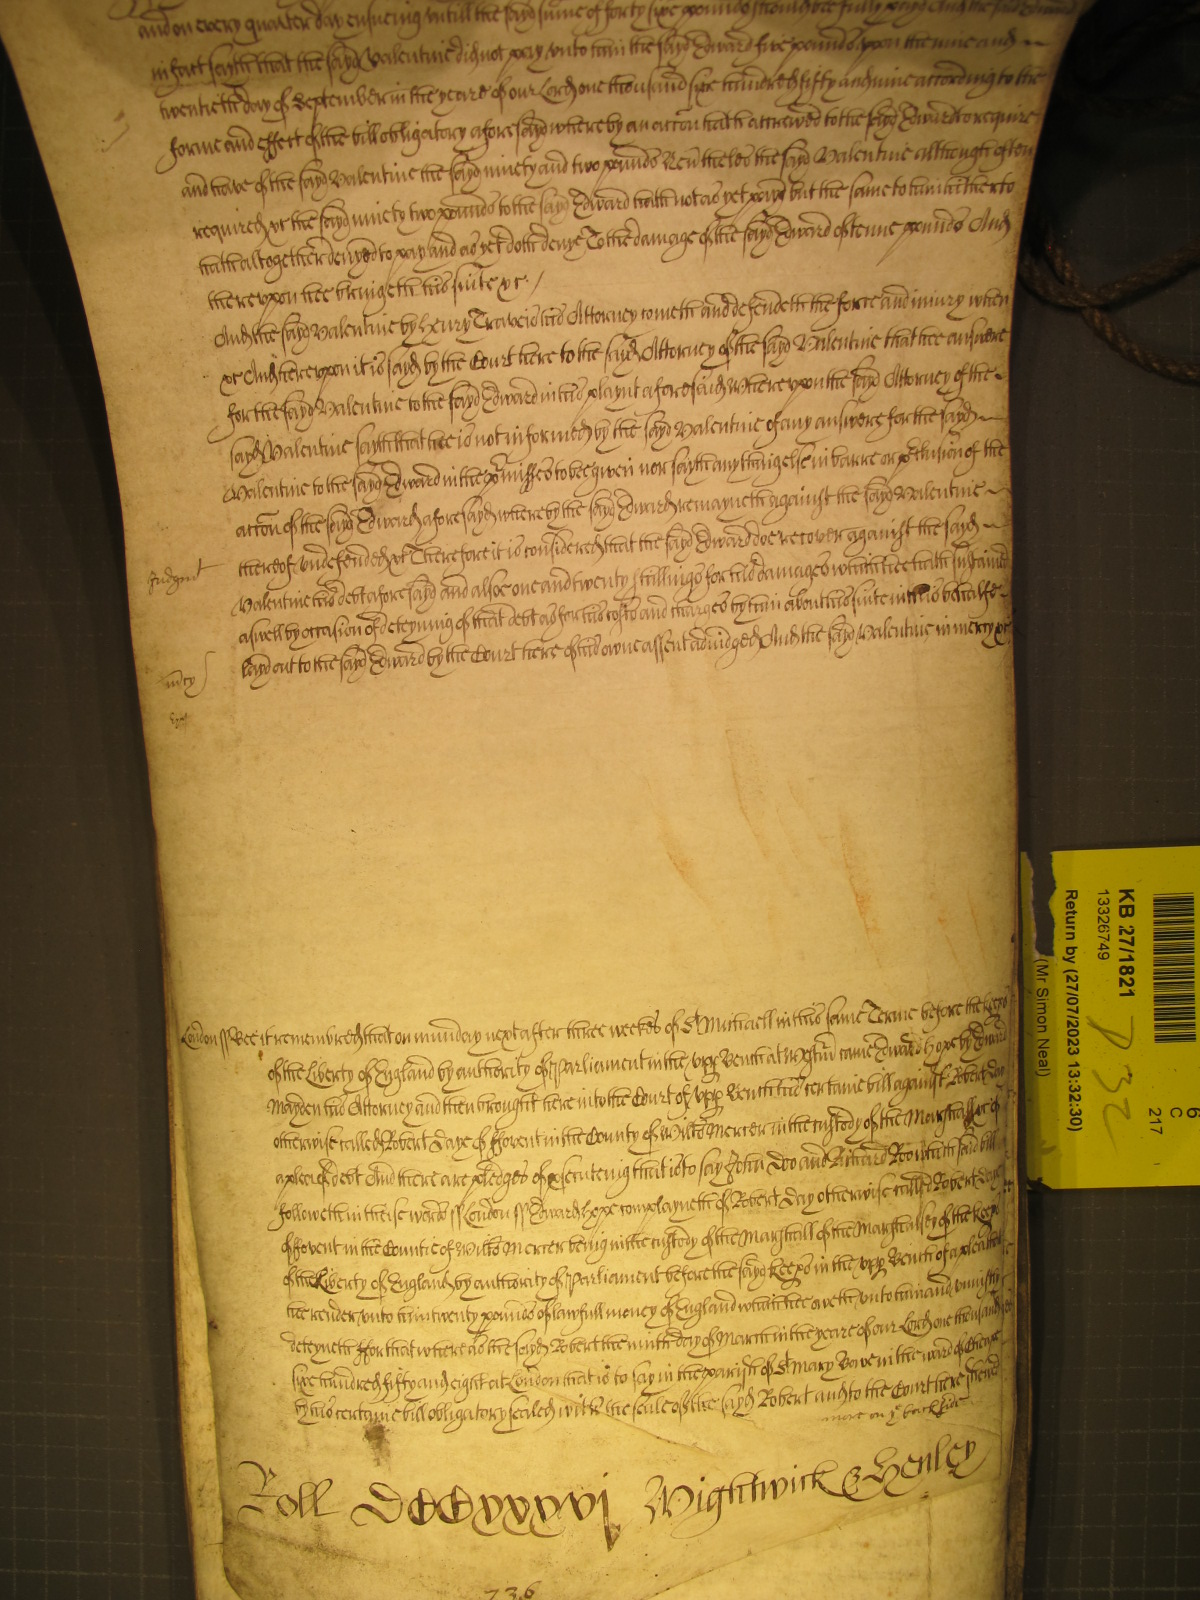 and on every quarter day ensueing untill the sayd sume of forty sixe pounds should bee fully payd And the said Edward
in fact sayth that the sayd Valentine did not pay unto him the sayd Edward five pounds upon the nine and
twentieth day of September in the yeare of our Lord one thousand sixe hundred fifty and nine according to the
forme and effect of the bill obligatory aforesayd whereby an accon hath accrewed to the sayd Edward to require
and have of the sayd Valentine the sayd ninety and two pounds Nevtheles the sayd Valentine although often
required &c the sayd ninety two pounds to the sayd Edward hath not as yet payd but the same to him hitherto
hath altogether denyed to pay and as yet doth denye To the damage of the sayd Edward of tenne pounds And
thereupon hee bringeth his suite &c
And the sayd Valentine by Henry Travers his Attorney cometh and defendeth the force and iniury when
&c And thereupon it is sayd by the Court here to the sayd Attorney of the sayd Valentine that hee answere
for the sayd Valentine to the sayd Edward in his playnt aforesaid Whereupon the sayd Attorney of the
sayd Valentine sayth that hee is not informed by the sayd Valentine of any answere for the sayd
Valentine to the sayd Edward in the pmisses to bee given nor sayth any thinge else in barre or pclusion of the
accon of the sayd Edward aforesayd whereby the sayd Edward remayneth against the sayd Valentine
thereof undefended &c Therefore it is considered that the sayd Edward doe recover against the sayd
Judgmt
Valentine his debt aforesayd and alsoe one and twenty shillings for his damages which hee hath susteined
aswell by occasion of deteyning of that debt as for his costs and charges by him about his suite in this behalfe
layd out to the sayd Edward by the Court here of his owne assent adiudged And the sayd Valentine in mercy &c
mcy
London ss Bee it remembred that on munday next after three weekes of St Michaell in this same Terme before the keeps
of the Liberty of England by authority of Parliament in the upp Bench at Westm came Edward Hope by Edward
Mayden his Attorney and then brought here into the Court of upp Bench his certaine bill against Robert Day
otherwise called Robert Daye of Fovent in the County of Wilts Mercer in the custody of the Marshall &c of
a plea of debt And there are pledges of psecuteing that is to say John Doo and Richard Roo which said bill
followeth in theise words ss London ss Edward Hope complayneth of Robert Day otherwise called Robert Daye
of Fovent in the Countie of Wilts Mercer being in the custody of the Marshall of the Marshalsey of the keeps
of the Liberty of England by authority of Parliament before the sayd keeps in the upp Bench of a plea that
hee render unto him twenty pounds of lawfull money of England which hee oweth unto him and uniustly
deteyneth For that whereas the sayd Robert the ninth day of March in the yeare of our Lord one thousand
sixe hundred fifty and eight at London that is to say in the parish of St Mary Bow in the ward of Cheape
by his certaine bill obligatory sealed with the seale of the sayd Robert and to the Court here shewed
more on ye backside
Roll DCCxxxvj Wightwick & Henley
736
KB 27/1821
13326749
Return by (27/07/2023 13:32:30)
(Mr Simon Neal)
D 32
6
C
217